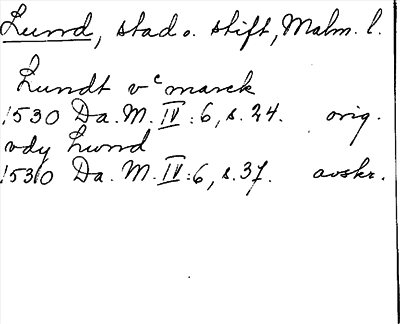 Lund, stad o. stift, Malm. l.
Lundt vᶜ marck
1530 Da. M. IV:6, s. 24. orig.
vdy Lund
1530 Da. M. IV:6, s. 37. avskr.